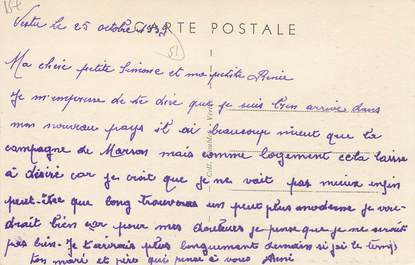 Vertu Le 25 octobre 1939
CARTE POSTALE
51
Ma chère petite Simone et ma petite Renée
Je m'empresse de te dire que je suis bien arrivé dans
mon nouveau pays il ai beaucoup mieut que la
campagne de Marson mais comme logement cela laisse
à désiré car je croit que je ne vait pas mieux enfin
peut-être que long trouveras un peut plus moderne je vou-
drait bien car pour mes douleurs je pense que je ne serait
pas bien. Je t'écrirais plus longuement demain si j'ai le temps
ton mari et père qui pense à vous René